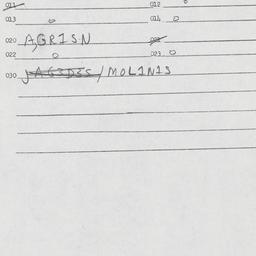 011 012 0
013 0 014 0
020 A,GRISN 021
022 0 023 0
030 /MOLINIS